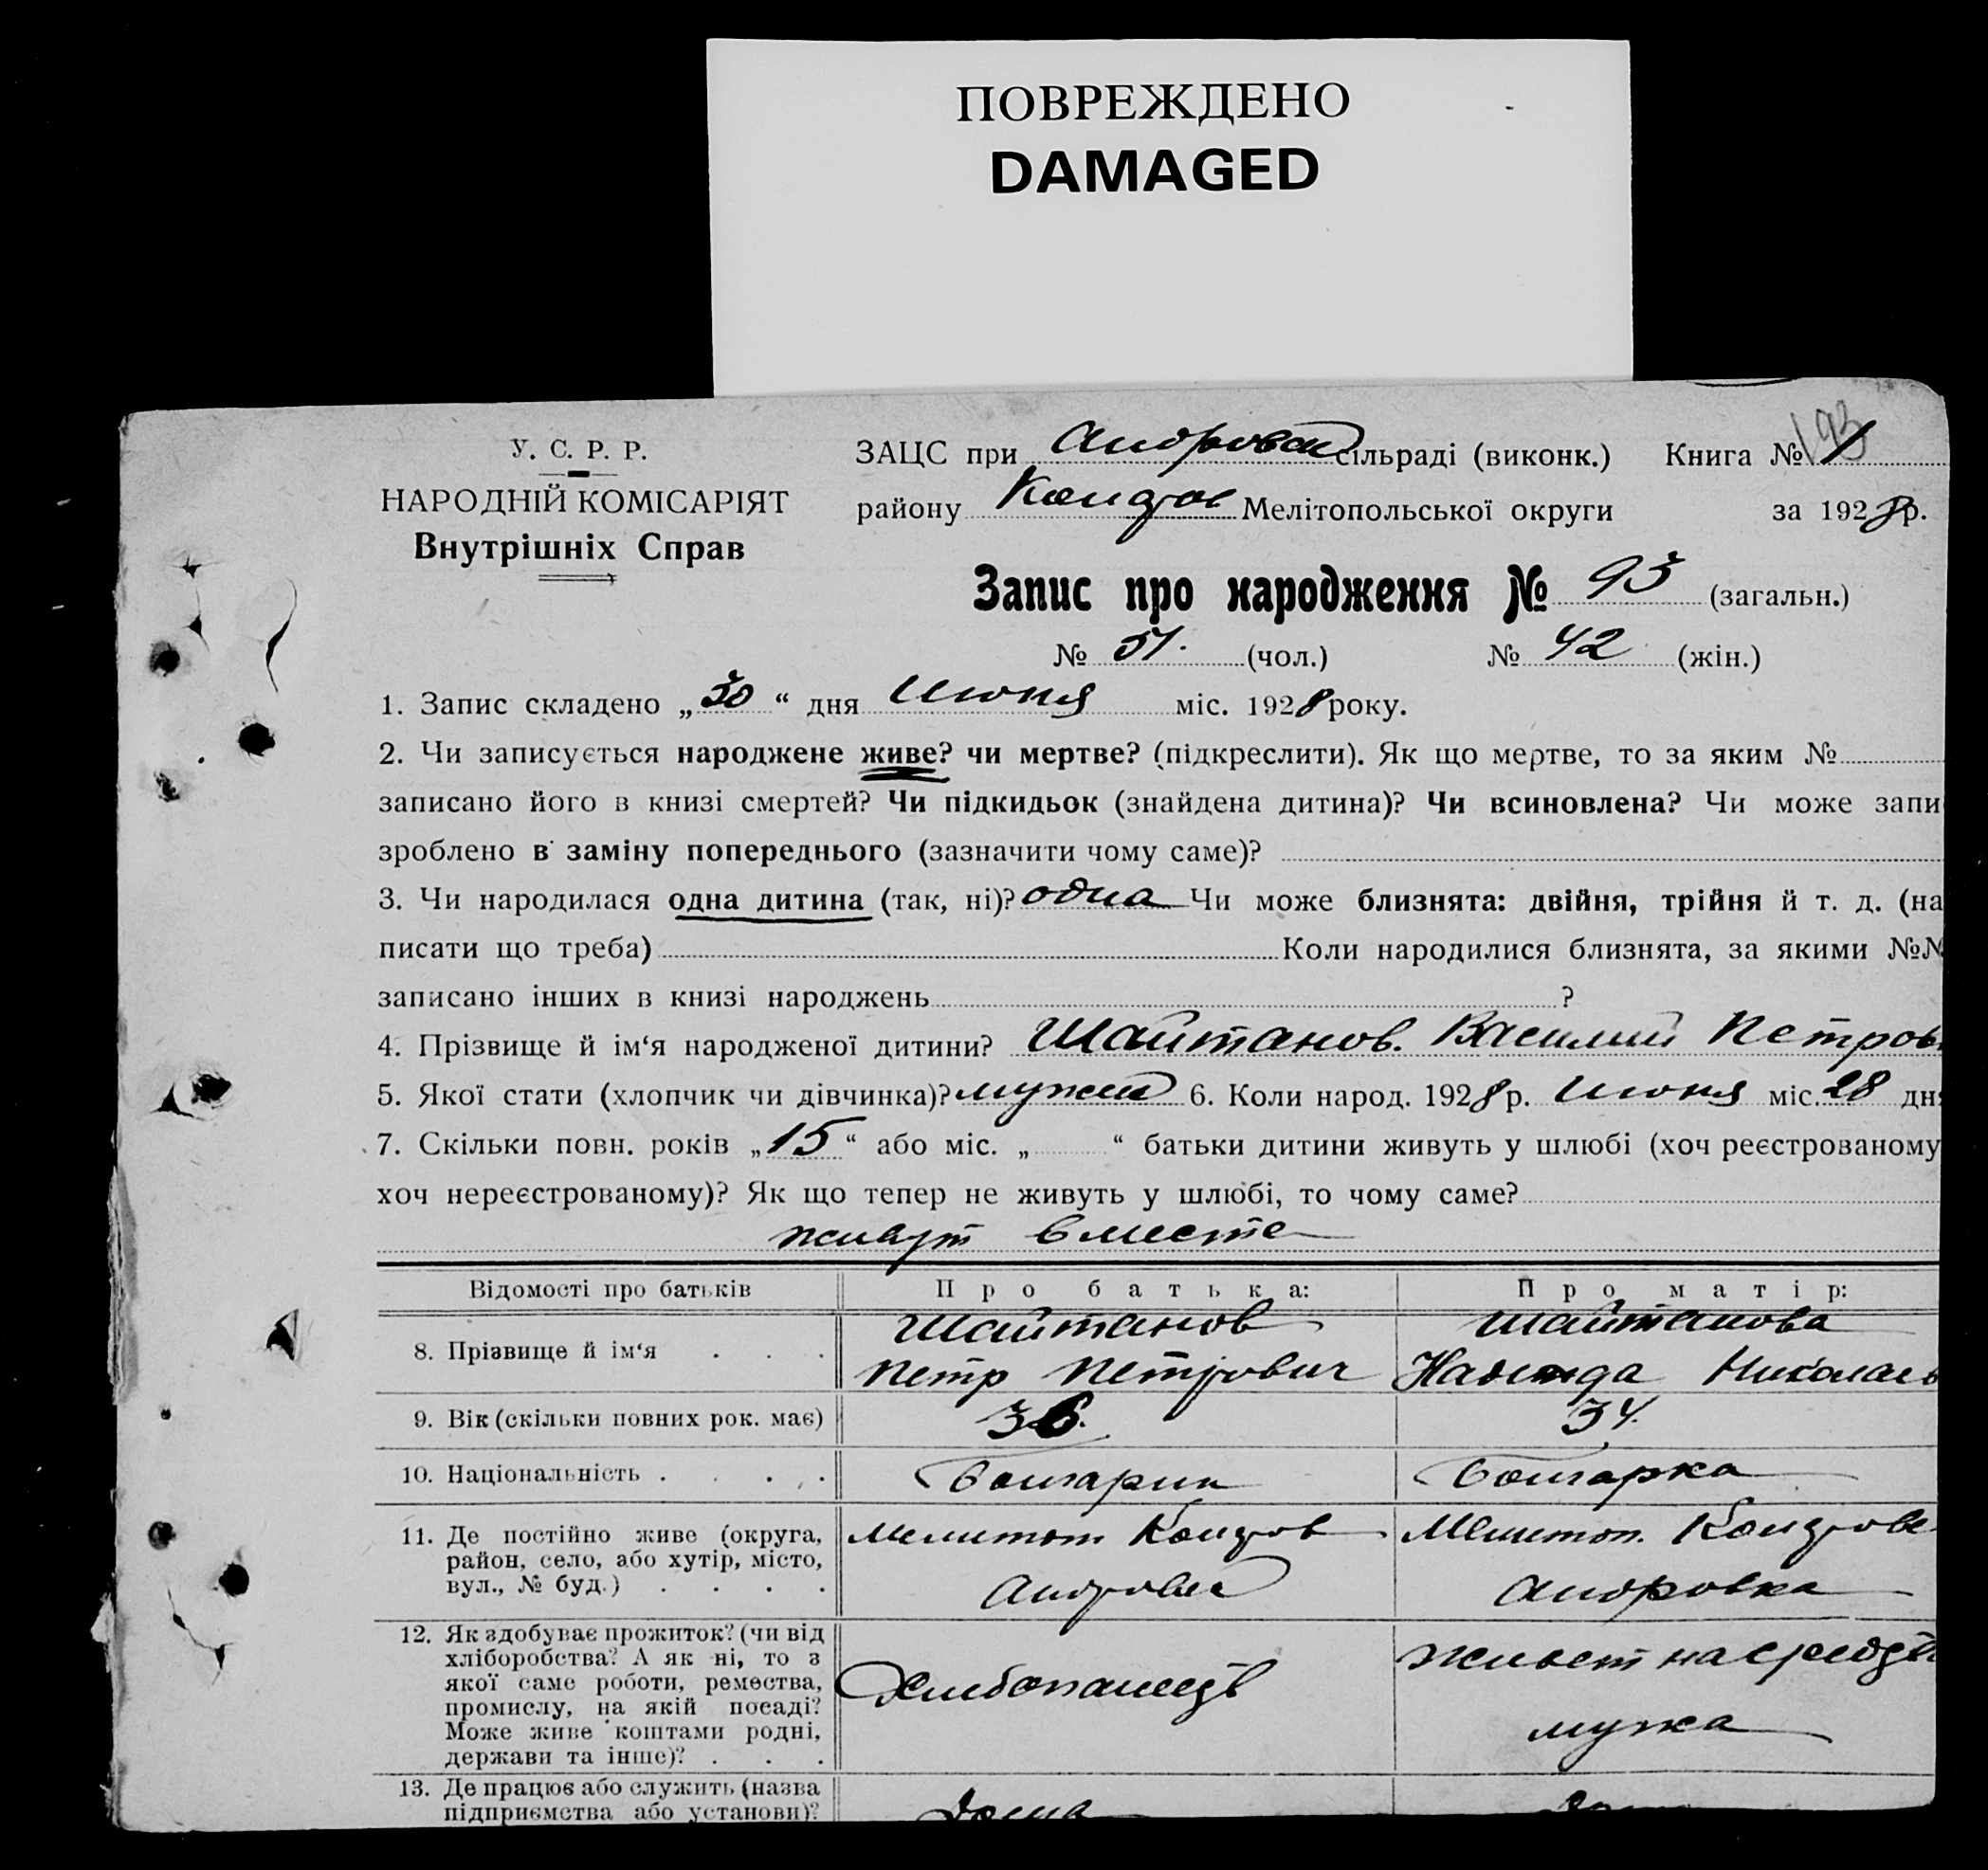 ПОВРЕЖДЕНО
DAMAGED
У. С. Р. Р.
НАРОДНІЙ КОМІСАРІЯТ
Внутрішніх Справ
193
ЗАЦС при Андровск сільраді (виконк.) Книга № 1
району Коларов Мелітопольської округи за 1928 р.
Запис про народження № 93 (загальн.)
№ 51. (чол.) № 42 (жін.)
1. Запис складено „30“ дня Июня міс. 1928 року.
2. Чи записується народжене живе? чи мертве? (підкреслити). Як що мертве, то за яким №
записано його в книзі смертей? Чи підкидьок (знайдена дитина)? Чи всиновлена? Чи може запи
зроблено в заміну попереднього (зазначити чому саме)?
3. Чи народилася одна дитина (так, ні)? одна Чи може близнята: двійня, трійня й т. д. (на
писати що треба) Коли народилися близнята, за якими №№
записано інших в книзі народжень ?
4. Прізвище й ім‘я народженої дитини? Шайтанов. Василий Петров
5. Якої стати (хлопчик чи дівчинка)? мужск 6. Коли народ. 1928 р. Июня міс. 28 дн
7. Скільки повн. років „15“ або міс. „ “ батьки дитини живуть у шлюбі (хоч реєстрованому
хоч нереєстрованому)? Як що тепер не живуть у шлюбі, то чому саме?
живут вместе
Відомості про батьків Про батька: Про матір:
8. Прізвище й ім‘я . . . Шайтанов Петр Петрович Шайтанова Надежда Николаев
9. Вік (скільки повних рок. має) 36. 34.
10. Національність . . . . Болгарин Болгарка
11. Де постійно живе (округа, Мелитоп Коларов Мелитоп. Коларов
район, село, або хутір, місто,
вул., № буд.) . . . . Андровка Андровка
12. Як здобуває прожиток? (чи від
хліборобства? А як ні, то з Живет на средств
якої саме роботи, ремества, Хлебопашец
промислу, на якій посаді?
Може живе коштами родні, мужа
держави та інше)? . . .
13. Де працює або служить (назва
підприємства або установи)? Дома